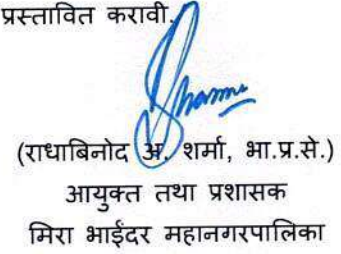 प्रस्तावित करावी.
(राधाबिनोद अ. शर्मा, भा.प्र.से.)
आयुक्त तथा प्रशासक
मिरा भाईंदर महानगरपालिका